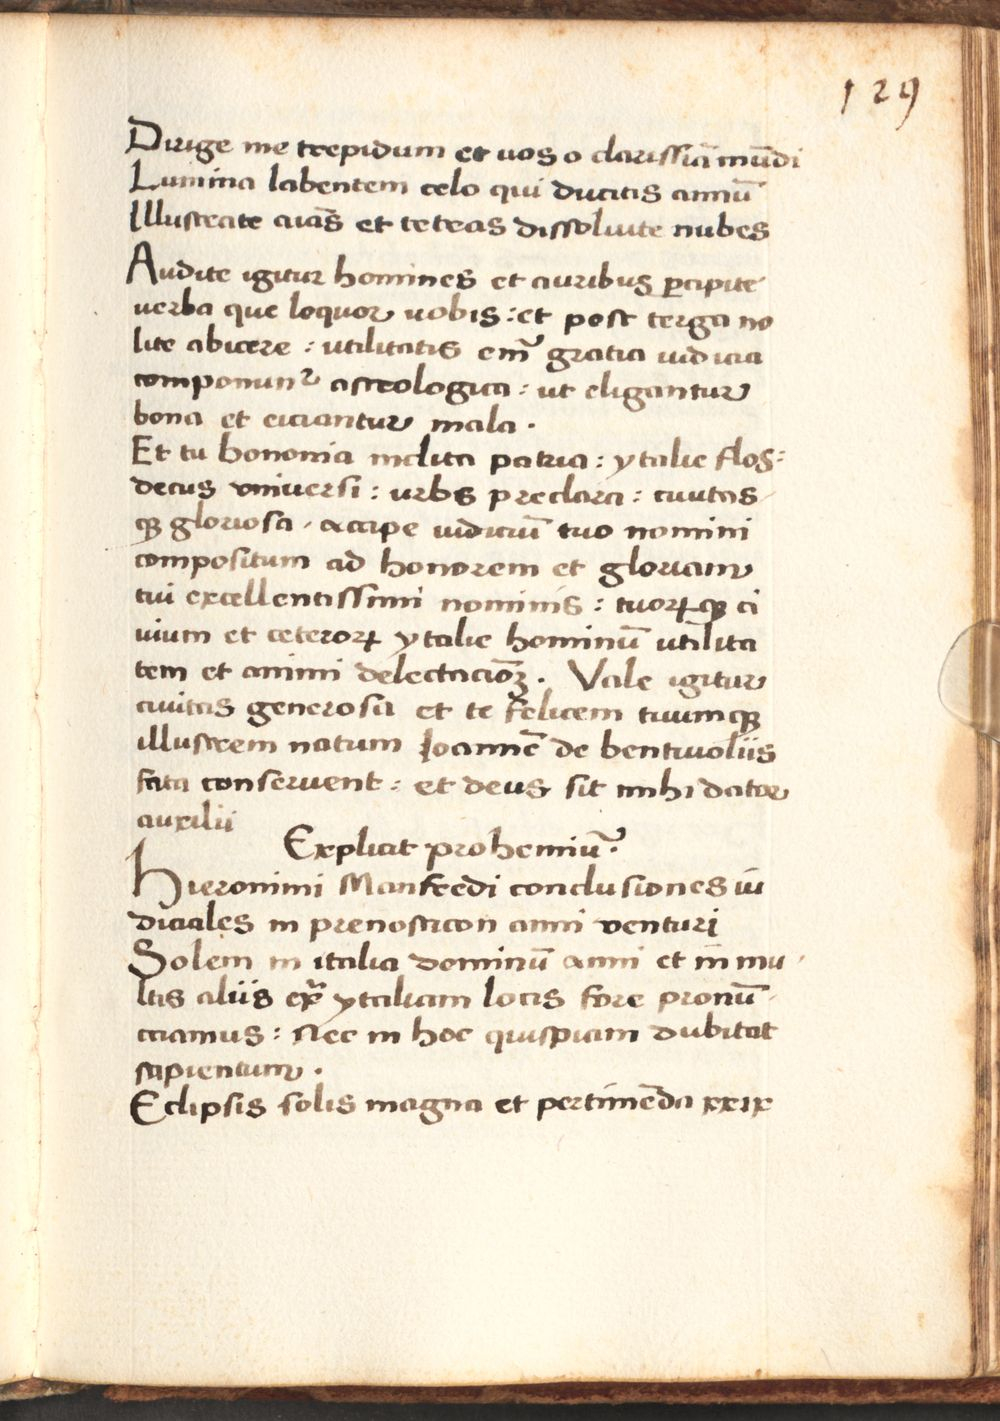 129
Dirige me trepidum et uos o clarissiā mūdi
Lumina labentem celo qui ducitis annū
Illustrate aīas et tetras dissoluite nubes
Audite igitur homines et auribus ꝑcipite
uerba que loquor uobis : et post terga no
lite abicere : utilitatis em̄ gratia iudicia
componunᷣ astrologica : ut eligantur
bona et eiciantur mala .
Et tu bononia inclita patria : ytalie flos :
decus vniuersi : urbs preclara : ciuitas
qꝫ gloriosa . accipe iudiciū tuo nomini
compositum ad honorem et gloriam
tui excellentissimi nominis : tuorꝝqꝫ ci
uium et ceterorꝝ ytalie hominū utilita
tem et animi delectacōꝫ . Vale igitur
ciuitas generosa et te felicem tuumqꝫ
illustrem natum Ioannē de bentiuoliis
fata conseruent : et deus sit mihi dator
auxilii
Explicit prohemiū .
Hieronimi Manfredi conclusiones iu
diciales in prenosticon anni venturi
Solem in italia dominū anni et in mu
ltis aliis ex̄ ytaliam locis fore pronū
ciamus : Nec in hoc quispiam dubitat
sapientum .
Eclipsis solis magna et pertimēda xxix